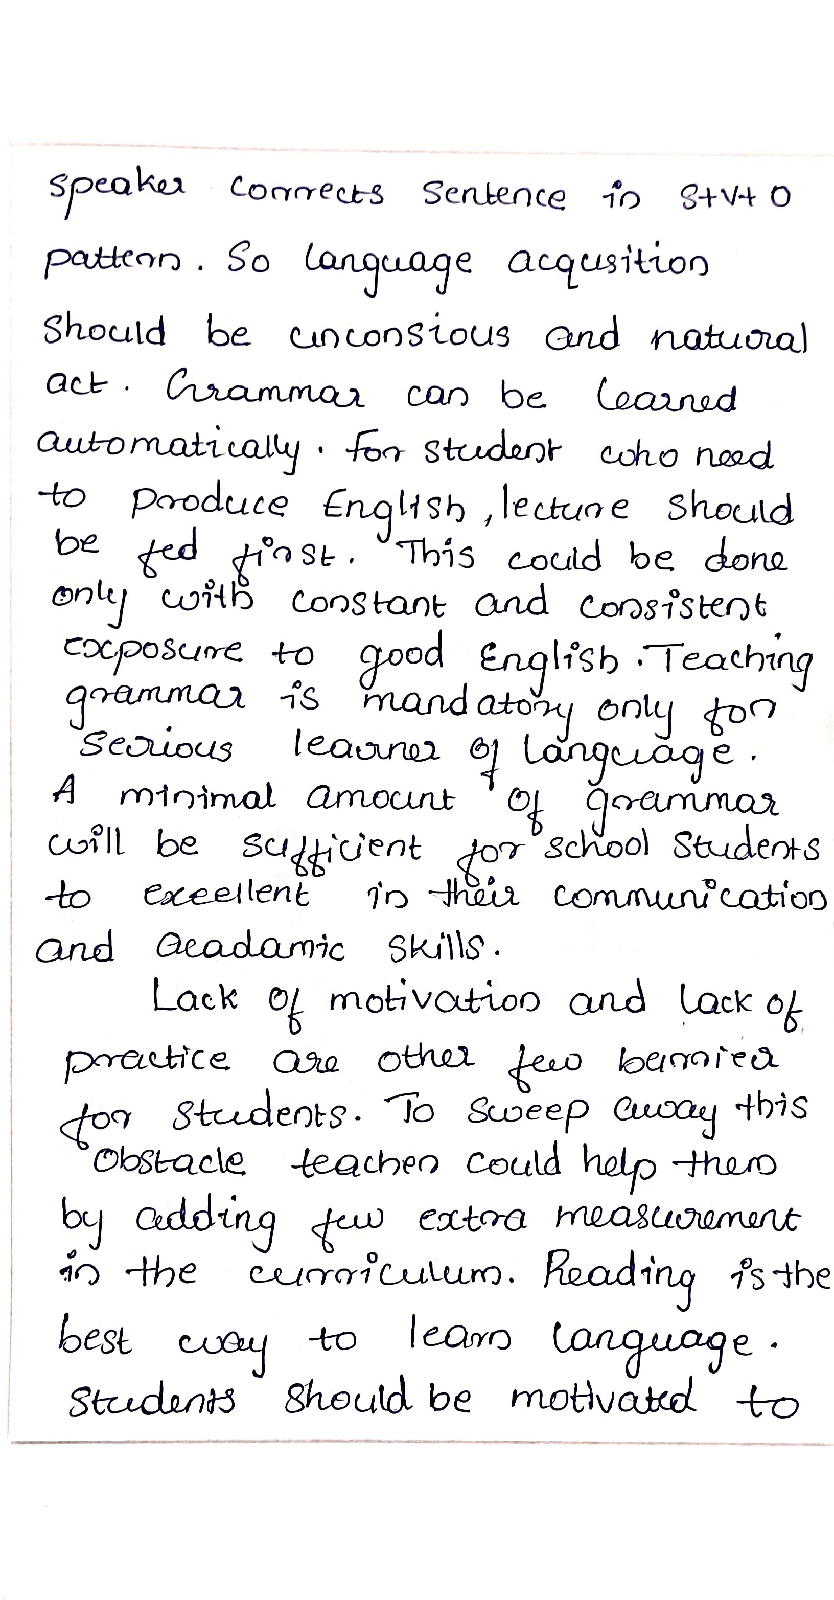 speaker corrects Sentence in S+V+O
pattern. So language acqusition
should be unconsious and natural
act. Grammar can be learned
automatically. For student who need
to produce English, lecture should
be fed first. This could be done
only with constant and consistent
exposure to good English. Teaching
grammar is mandatory only for
serious learner of language.
A minimal amount of grammar
will be sufficient for school students
to excellent in their communication
and acadamic skills.
Lack of motivation and lack of
practice are other few barrier
for students. To sweep away this
obstacle teacher could help them
by adding few extra measurement
in the curriculum. Reading is the
best way to learn language.
Students should be motivated to